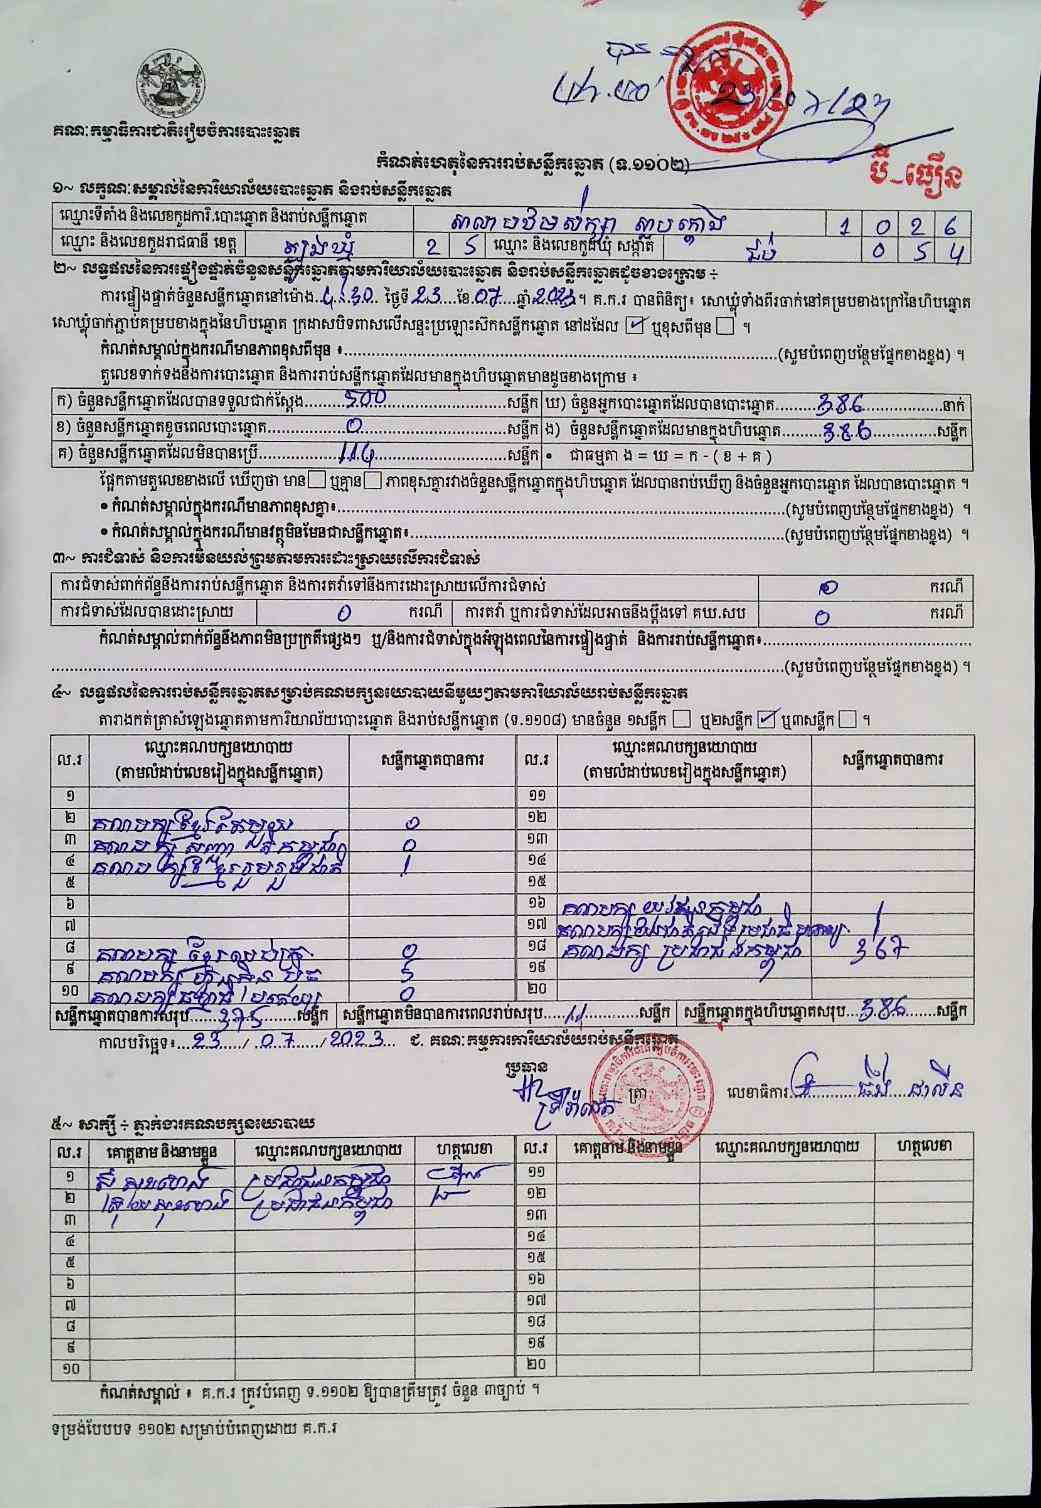 បាន
23/07/2023
គណៈកម្មាធិការជាតិរៀបចំការបោះឆ្នោត
កំណត់ហេតុនៃការរាប់សន្លឹកឆ្នោត (ទ.១១០២)
បឹ-ធឿន
១~ លក្ខណៈសម្គាល់នៃការិយាល័យបោះឆ្នោត និងរាប់សន្លឹកឆ្នោត
ឈ្មោះទីតាំង និងលេខកូដការិ.បោះឆ្នោត និងរាប់សន្លឹកឆ្នោត 1 0 2 6
ឈ្មោះ និងលេខកូដរាជធានី ខេត្ត ត្បូងឃ្មុំ 2 5 ឈ្មោះ និងលេខកូដឃុំ សង្កាត់ ជប់ 0 5 4
២~ លទ្ធផលនៃការផ្ទៀងផ្ទាត់ចំនួនសន្លឹកឆ្នោតតាមការិយាល័យបោះឆ្នោត និងរាប់សន្លឹកឆ្នោតដូចខាងក្រោម ÷
ការផ្ទៀងផ្ទាត់ចំនួនសន្លឹកឆ្នោតនៅម៉ោង...4:30 ថ្ងៃទី 23 ខែ.07...ឆ្នាំ 2023។ គ.ក.រ បានពិនិត្យ៖ សោឃ្លុំទាំងពីរចាក់នៅគម្របខាងក្រៅនៃហិបឆ្នោត
សោឃ្លុំចាក់ភ្ជាប់គម្របខាងក្នុងនៃហិបឆ្នោត ក្រដាសបិទពាសលើសន្ទះប្រឡោះស៊កសន្លឹកឆ្នោត នៅដដែល ☑ ឬខុសពីមុន ☐ ។
កំណត់សម្គាល់ក្នុងករណីមានភាពខុសពីមុន ៖......(សូមបំពេញបន្ថែមផ្នែកខាងខ្នង) ។
តួលេខទាក់ទងនឹងការបោះឆ្នោត និងការរាប់សន្លឹកឆ្នោតដែលមានក្នុងហិបឆ្នោតមានដូចខាងក្រោម ៖
ក) ចំនួនសន្លឹកឆ្នោតដែលបានទទួលជាក់ស្តែង......500......សន្លឹក ឃ) ចំនួនអ្នកបោះឆ្នោតដែលបានបោះឆ្នោត......386......នាក់
ខ) ចំនួនសន្លឹកឆ្នោតខូចពេលបោះឆ្នោត......0......សន្លឹក ង) ចំនួនសន្លឹកឆ្នោតដែលមានក្នុងហិបឆ្នោត......386......សន្លឹក
គ) ចំនួនសន្លឹកឆ្នោតដែលមិនបានប្រើ......114......សន្លឹក • ជាធម្មតា ង = ឃ = ក - ( ខ + គ )
ផ្អែកតាមតួលេខខាងលើ ឃើញថា មាន ☐ ឬគ្មាន ☐ ភាពខុសគ្នារវាងចំនួនសន្លឹកឆ្នោតក្នុងហិបឆ្នោត ដែលបានរាប់ឃើញ និងចំនួនអ្នកបោះឆ្នោត ដែលបានបោះឆ្នោត ។
• កំណត់សម្គាល់ក្នុងករណីមានភាពខុសគ្នា៖......(សូមបំពេញបន្ថែមផ្នែកខាងខ្នង) ។
• កំណត់សម្គាល់ក្នុងករណីមានវត្ថុមិនមែនជាសន្លឹកឆ្នោត៖......(សូមបំពេញបន្ថែមផ្នែកខាងខ្នង) ។
៣~ ការជំទាស់ និងការមិនយល់ព្រមតាមការដោះស្រាយលើការជំទាស់
ការជំទាស់ពាក់ព័ន្ធនឹងការរាប់សន្លឹកឆ្នោត និងការតវ៉ាទៅនឹងការដោះស្រាយលើការជំទាស់ 0 ករណី
ការជំទាស់ដែលបានដោះស្រាយ 0 ករណី ការតវ៉ា ឬការជំទាស់ដែលអាចនឹងប្តឹងទៅ គឃ.សប 0 ករណី
កំណត់សម្គាល់ពាក់ព័ន្ធនឹងភាពមិនប្រក្រតីផ្សេងៗ ឬ/និងការជំទាស់ក្នុងអំឡុងពេលនៃការផ្ទៀងផ្ទាត់ និងការរាប់សន្លឹកឆ្នោត៖......
......(សូមបំពេញបន្ថែមផ្នែកខាងខ្នង) ។
៤~ លទ្ធផលនៃការរាប់សន្លឹកឆ្នោតសម្រាប់គណបក្សនយោបាយនីមួយៗតាមការិយាល័យរាប់សន្លឹកឆ្នោត
តារាងកត់ត្រាសំឡេងឆ្នោតតាមការិយាល័យបោះឆ្នោត និងរាប់សន្លឹកឆ្នោត (ទ.១១០៨) មានចំនួន ១សន្លឹក ☐ ឬ២សន្លឹក ☑ ឬ៣សន្លឹក ☐ ។
ល.រ ឈ្មោះគណបក្សនយោបាយ (តាមលំដាប់លេខរៀងក្នុងសន្លឹកឆ្នោត) សន្លឹកឆ្នោតបានការ ល.រ ឈ្មោះគណបក្សនយោបាយ (តាមលំដាប់លេខរៀងក្នុងសន្លឹកឆ្នោត) សន្លឹកឆ្នោតបានការ
១ ១១
២ គណបក្សខ្មែរតែមួយ 0 ១២
៣ គណបក្ស សញ្ជាតិកម្ពុជា 0 ១៣
៤ គណបក្សខ្មែររួបរួមជាតិ 1 ១៤
៥ ១៥
៦ ១៦ គណបក្ស យុវជនកម្ពុជា 1
៧ ១៧ 1
៨ គណបក្ស ខ្មែរឈប់ក្រ 0 ១៨ គណបក្ស ប្រជាជនកម្ពុជា 367
៩ គណបក្សហ្វ៊ុនស៊ិនប៉ិច 5 ១៩
១០ 0 ២០
សន្លឹកឆ្នោតបានការសរុប...375...សន្លឹក សន្លឹកឆ្នោតមិនបានការពេលរាប់សរុប...11...សន្លឹក សន្លឹកឆ្នោតក្នុងហិបឆ្នោតសរុប...386...សន្លឹក
កាលបរិច្ឆេទ៖...23.../...07.../2023... ជ. គណៈកម្មការការិយាល័យរាប់សន្លឹកឆ្នោត
ប្រធាន
ត្រា
លេខាធិការ
៥~ សាក្សី ÷ ភ្នាក់ងារគណបក្សនយោបាយ
ល.រ គោត្តនាម និងនាមខ្លួន ឈ្មោះគណបក្សនយោបាយ ហត្ថលេខា ល.រ គោត្តនាម និងនាមខ្លួន ឈ្មោះគណបក្សនយោបាយ ហត្ថលេខា
១ ប្រជាជនកម្ពុជា ១១
២ ប្រជាជនកម្ពុជា ១២
៣ ១៣
៤ ១៤
៥ ១៥
៦ ១៦
៧ ១៧
៨ ១៨
៩ ១៩
១០ ២០
កំណត់សម្គាល់ ៖ គ.ក.រ ត្រូវបំពេញ ទ.១១០២ ឱ្យបានត្រឹមត្រូវ ចំនួន ៣ច្បាប់ ។
ទម្រង់បែបបទ ១១០២ សម្រាប់បំពេញដោយ គ.ក.រ